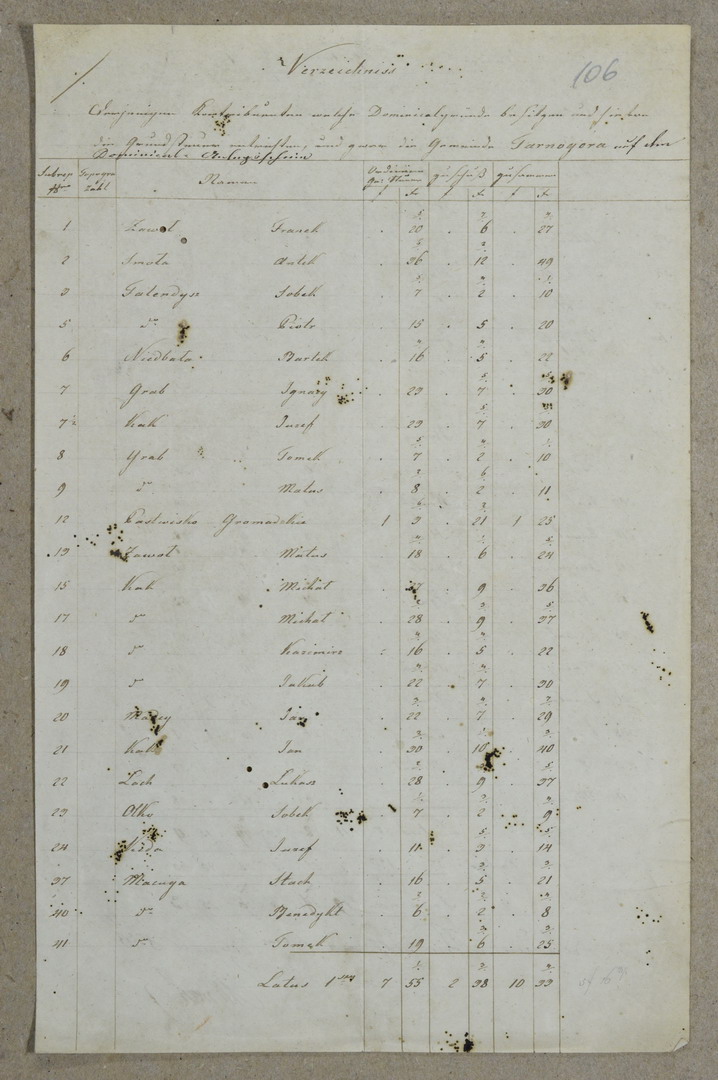 106
Verzeichniss
derjenigen Kontribuenten welche Dominicalgründe besitzen und hievon
die Grundsteuer entrichten, und zwar die Gemeinde Tarnogora auf dem
Dominical-
Subrep Topogra Namen zuschuß zusammen
Nro zahl f xr f xr f xr
1 Zawoł Franek . 20 . 6 . 27
2 Smola Antek . 36 . 12 . 49
3 Talendysz Sobek . 7 . 2 . 10
5 dto Piotr . 15 . 5 . 20
6 Niedbała Bartek . 16 . 5 . 22
7 Grab Ignacy . 23 . 7 . 30
7 Kak Juzef . 23 . 7 . 30
8 Grab Tomek . 7 . 2 . 10
9 dto Matus . 8 . 2 . 11
12 Pastwisko Gromadzkie 1 3 . 21 1 25
13 Zawoł Matus . 18 . 6 . 24
15 Kak Michał . 27 . 9 . 36
17 dto Michał . 28 . 9 . 37
18 dto Kazimirz . 16 . 5 . 22
19 dto Jakub . 22 . 7 . 30
20 Jan . 22 . 7 . 29
21 Kak Jan . 30 . 10 . 40
22 Lach Lukasz . 28 . 9 . 37
23 Olko Sobek . 7 . 2 . 9
24 Juzef . 11 . 3 . 14
37 Macuga Stach . 16 . 5 . 21
40 dto Benedykt . 6 . 2 . 8
41 dto Tomek . 19 . 6 . 25
Latus 7 55 2 38 10 33